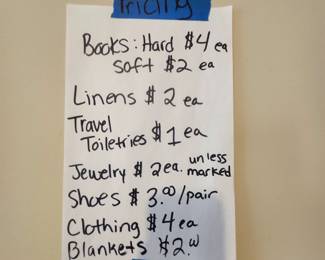 Pricing
Books: Hard $4 ea
soft $2 ea
Linens $2 ea
Travel
Toiletries $1 ea
Jewelry $2 ea. unless
marked
Shoes $3.00/pair
Clothing $4 ea
Blankets $2.00